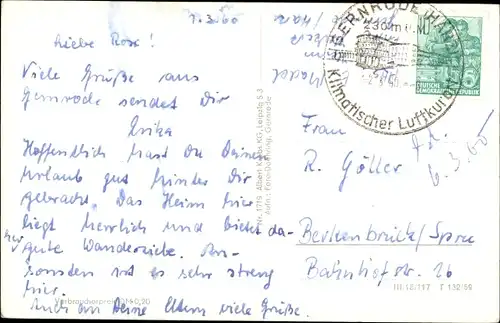 1.3.60
Liebe Rose!
Viele Grüße aus
Gernrode sendet Dir
Erika
Hoffentlich hast Du Deinen
Urlaub gut hinter Dir
gebracht. Das Heim hier
liegt herrlich und bietet da-
bei gute Wanderziele. An-
sonsten ist es sehr streng
hier.
Auch an Deine Eltern viele Grüße.
Verbraucherpreis DM 0,20
Nr. 1719 Albert Krebs KG, Leipzig S 3
Aufn.: Foto-Döring, Gernrode
GERNRODE (HARZ)
230m ü.M.
Klimatischer Luftkurort
DEUTSCHE
DEMOKRATISCHE
Frau
R. Göller
6.3.60
Berkenbrück/Spree
Bahnhofstr. 26
III/18/197 T 132/59